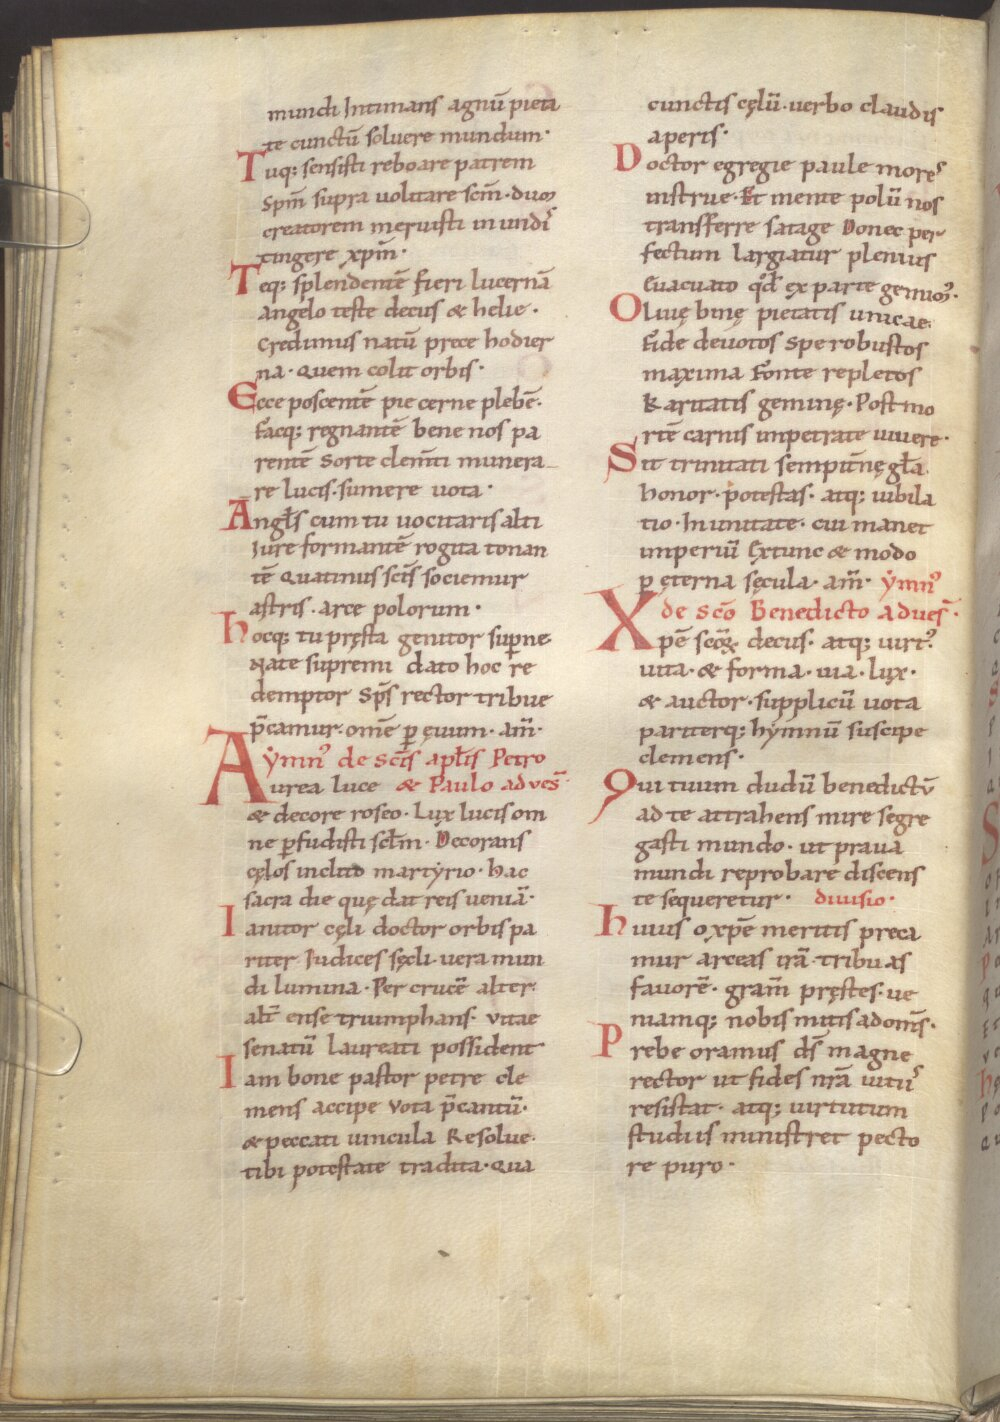 mundi Intimans agnū pieta
te cunctū soluere mundum·
Tuq; sensisti reboare patrem
Spm̄ supra uolitare scm̄· duoꝝ
creatorem meruisti in undis
tingere xp̄m·
Teq; splendentē fieri lucernā
angelo teste decus & helie·
Credimus natū prece hodier
na· Quem colit orbis·
Ecce poscentē pie cerne plebē·
Facq; regnantē bene nos pa
rentē Sorte clem̄ti munera
re lucis· sumere uota·
Angłs cum tu uocitaris alti
Iure formantē rogita tonan
tē Quatinus scīs sociemur
astris· arce polorum·
hocq; tu pręsta genitor suꝑne
Nate supremi dato hoc re
demptor Sps̄ rector tribue
p̄camur· om̄e ꝑ ęuum· am̄·
ẏmnꝰ de scīs apłis Petro
Aurea luce & Paulo ad ues̄·
& decore roseo· Lux lucis om
ne ꝑfudisti sclm̄· Decorans
cęlos inclito martẏrio· hac
sacra die quę dat reis ueniā·
Ianitor cęli doctor orbis pa
riter Iudices sęcli· uera mun
di lumina· Per crucē alter·
alt̄ ense triumphans· vitae
senatū laureati possident·
Iam bone pastor petre cle
mens accipe vota p̄cantū·
& peccati uincula Resolue·
tibi potestate tradita· Qua
cunctis cęlū· uerbo claudis
aperis·
Doctor egregie paule mores
instrue· Et mente polū nos
transferre satage Donec per
fectum largiatur plenius
Euacuato qđ ex parte gerimꝰ·
Oliuę binę pietatis unicae·
Fide deuotos Spe robustos
maxima Fonte repletos
Karitatis geminę· Post mo
rtē carnis impetrate uiuere·
Sit trinitati sempit̄nę gła
honor· potestas· atq; iubila
tio· In unitate· cui manet
imperiū Extunc & modo
ꝑ ęterna sęcula· am̄· ẏmnꝰ
de scō Benedicto ad ues̄·
Xpē scōꝝ decus· atq; uirtꝰ·
uita· & forma· uia· lux·
& auctor· supplicū uota
pariterq; hẏmnū suscipe
clemens·
Qui tuum dudū benedictū
ad te attrahens mire segre
gasti mundo· ut praua
mundi reprobare discens
te sequeretur· diuisio·
huius o xpē meritis preca
mur arceas irā· tribuas
fauorē· gram̄ pręstes· ue
niamq; nobis mitis adom̄s·
Prebe oramus ds̄ magne
rector ut fides nr̄a uitiis
resistat· atq; uirtutum
studiis ministret pecto
re puro·